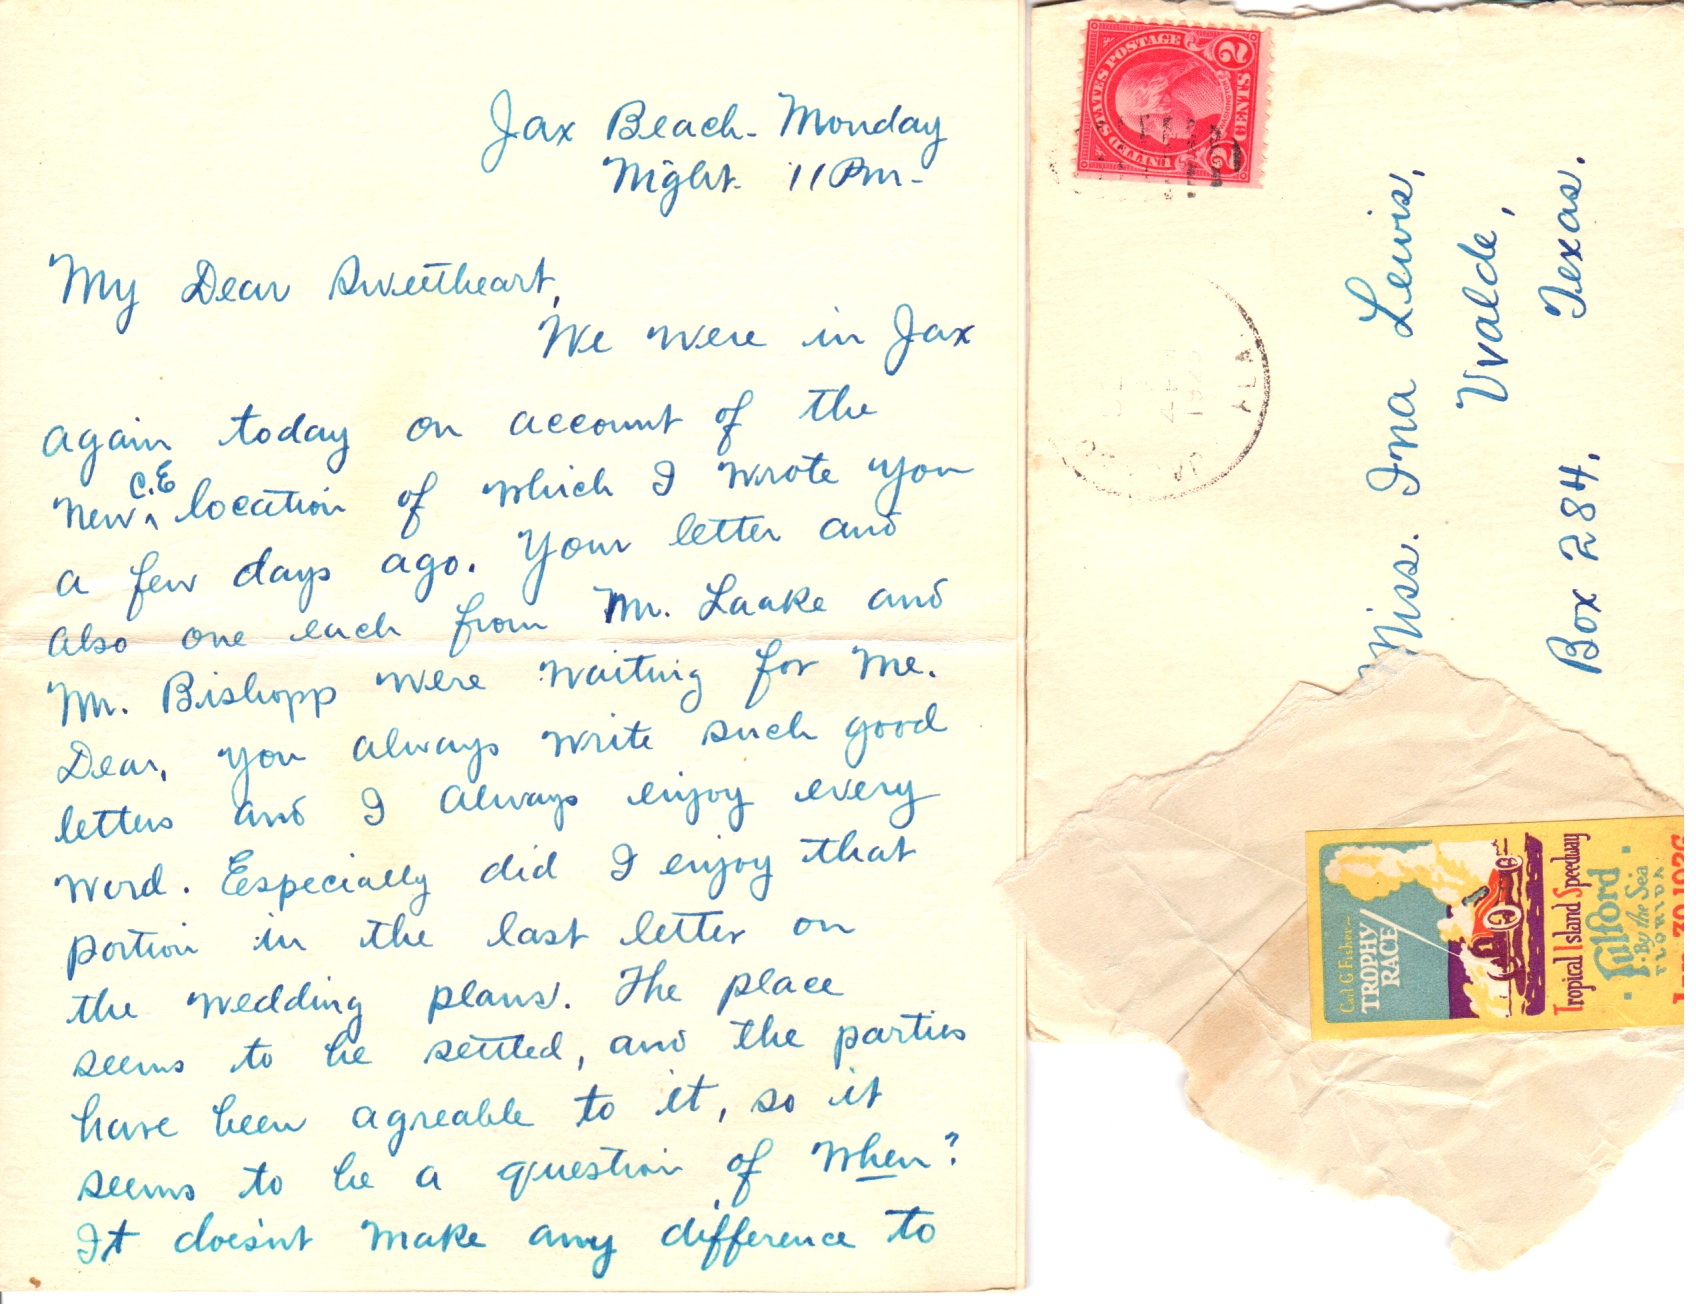 Jax Beach - Monday
Night - 11 Pm -
My Dear Sweetheart,
We were in Jax
again today on account of the
C.E
new ^ location of which I wrote you
a few days ago. Your letter and
also one each from Mr. Laake and
Mr. Bishopp were waiting for me.
Dear, you always write such good
letters and I always enjoy every
word. Especially did I enjoy that
portion in the last letter on
the wedding plans. The place
seems to be settled, and the parties
have been agreable to it, so it
seems to be a question of When?
It doesn't make any difference to
UNITED STATES POSTAGE
WASHINGTON
2 CENTS 2
FLA
Miss. Ina Lewis,
Uvalde,
Box 284. Texas.
Carl G Fisher-
TROPHY
RACE
Tropical Island Speedway
Fulford
By the Sea
FLORIDA